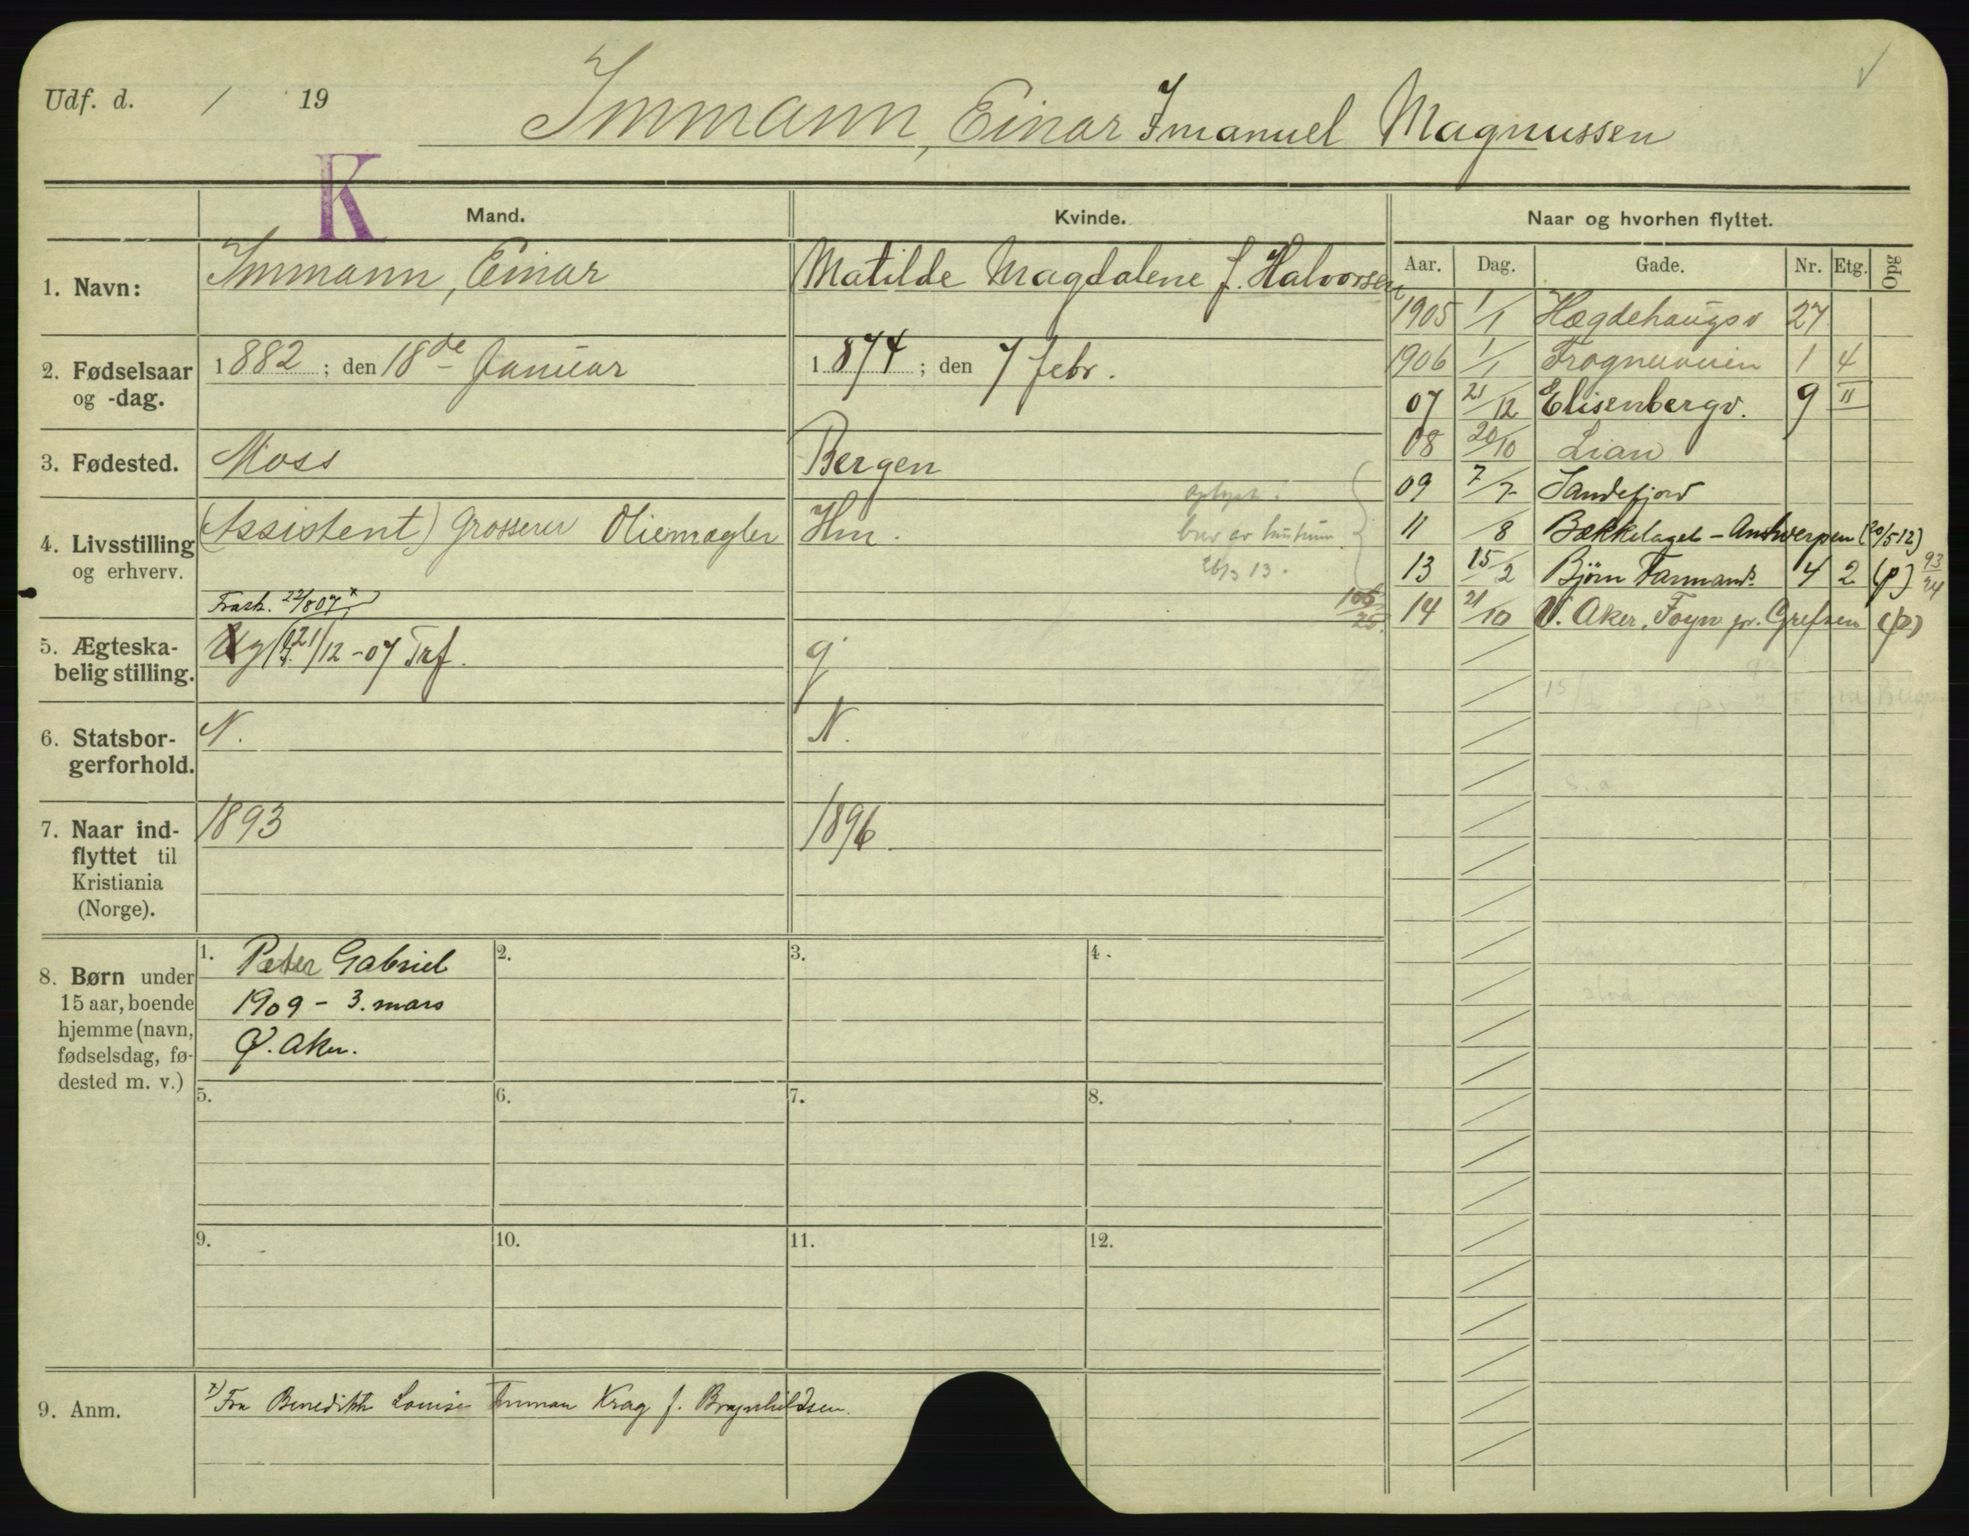 Udf. d. / 19
Immann, Einar Imanuel Magnussen
K
Mand. Kvinde. Naar og hvorhen flyttet.
Aar. Dag. Gade. Nr. Etg. Opg
1. Navn: Immann, Einar Matilde Magdalene f. Halvorsen
1905 1/1 Hægdehaugsv 27
2. Fødselsaar og -dag. 1882 ; den 18de Januar 1874 ; den 7 febr.
1906 1/1 1 4
07 21/12 Elisenbergv. 9 II
3. Fødested. Moss Bergen
08 20/10 Lian
09 7/7 Sandefjord
4. Livsstilling og erhverv. (Assistent) Grosserer Oliemægler Hm.
26/3 13.
11 /8 Bækkelaget - Antwerpen (20/5-12)
13 15/2 Bjørn Farmands 4 2 (p) 93/94
14 21/10 V. Aker, Grefsen (p)
Frask. 22/8 07 x)
5. Ægteska-
belig stilling. 21/12 - 07 Trf. g
6. Statsbor-
gerforhold. N. N.
7. Naar ind-
flyttet til
Kristiania
(Norge). 1893 1896
8. Børn under
15 aar, boende
hjemme (navn,
fødselsdag, fø-
dested m. v.)
1. Peter Gabriel
1909 - 3. mars
Ø. Aker.
2.
3.
4.
5.
6.
7.
8.
9.
10.
11.
12.
9. Anm. x) Fra Benedikte Louise Krag f. Bragnhildsen.